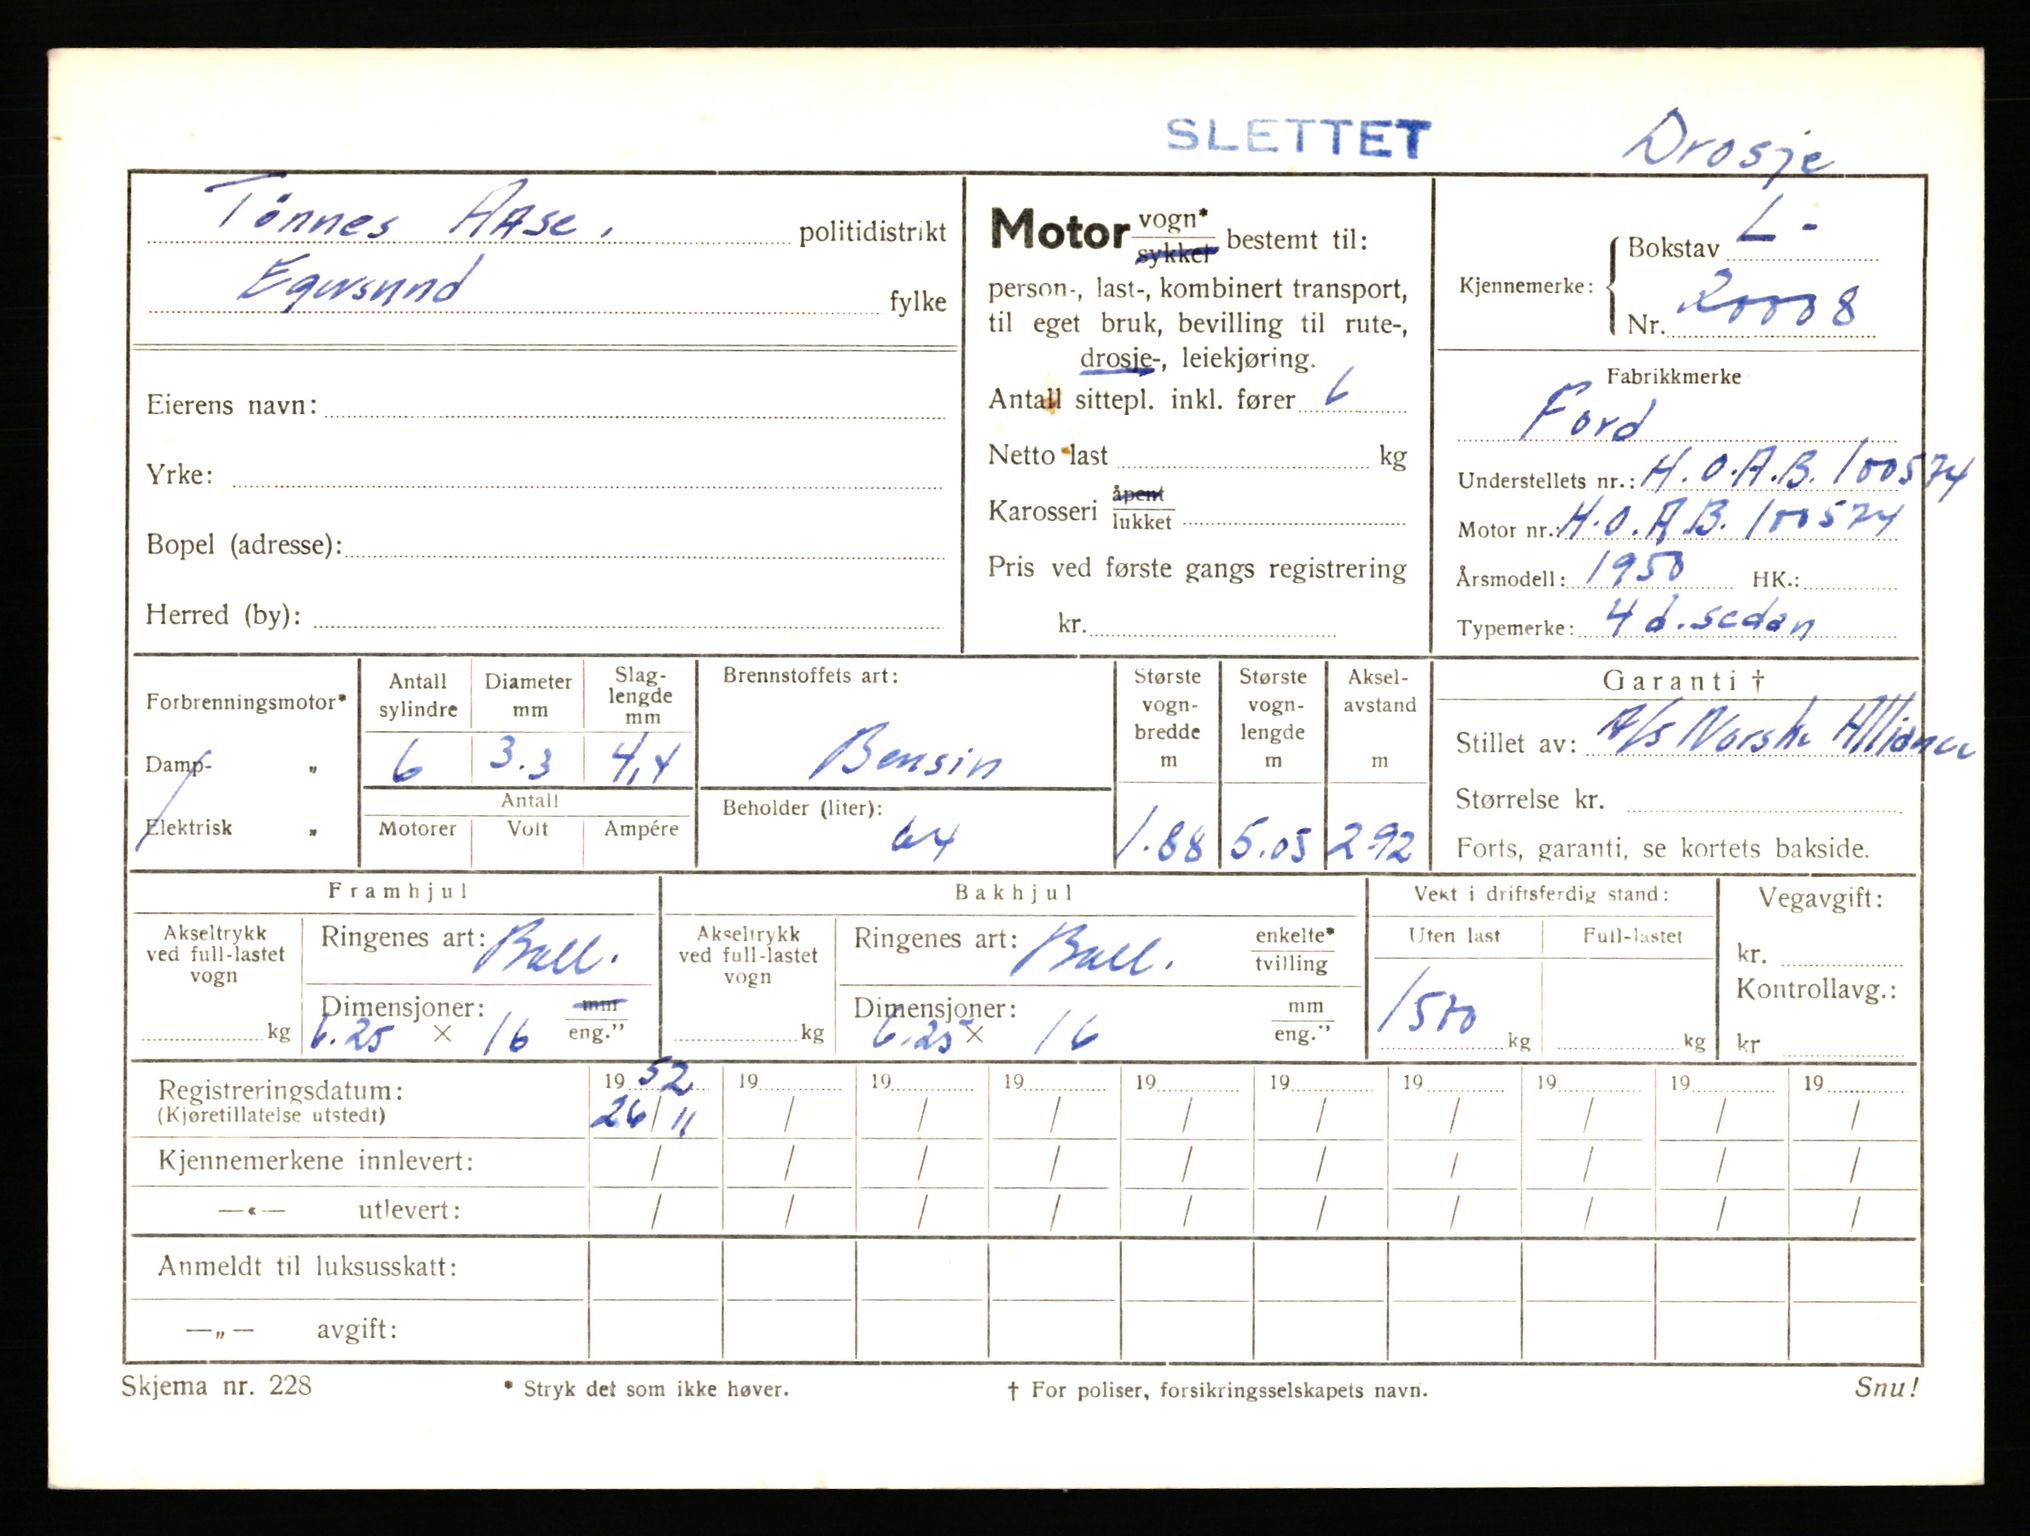 SLETTET Drosje
Tönnes AAse. politidistrikt
Egersund fylke
Eierens navn:
Yrke:
Bopel (adresse):
Herred (by):
Motor vogn* sykkel bestemt til:
person-, last-, kombinert transport,
til eget bruk, bevilling til rute-,
drosje-, leiekjøring.
Antall sittepl. inkl. fører 6
Netto last kg
Karosseri åpent lukket
Pris ved første gangs registrering
kr.
Kjennemerke: Bokstav L-
Nr. 20008
Fabrikkmerke
Ford
Understellets nr.: H.O.A.B. 100574
Motor nr.: H.O.A.B. 100574
Årsmodell: 1950 HK.:
Typemerke: 4 d.sedan
Forbrenningsmotor*
Damp- "
Elektrisk "
Antall sylindre Diameter mm Slag-lengde mm
6 3.3 4,4
Antall
Motorer Volt Ampére
Brennstoffets art:
Bensin
Beholder (liter):
64
Største vogn-bredde m Største vogn-lengde m Aksel-avstand m
1.88 5.05 2.92
Garanti †
Stillet av: A/s Norske Alliance
Størrelse kr.
Forts, garanti, se kortets bakside.
Framhjul
Akseltrykk ved full-lastet vogn
kg
Ringenes art: Ball.
Dimensjoner: mm
6.25 × 16 eng.”
Bakhjul
Akseltrykk ved full-lastet vogn
kg
Ringenes art: Ball. enkelte* tvilling
Dimensjoner: mm
6.25 × 16 eng.”
Vekt i driftsferdig stand:
Uten last Full-lastet
1570 kg kg
Vegavgift:
kr.
Kontrollavg.:
kr
Registreringsdatum: 19 52 19 19 19 19 19 19 19 19 19
(Kjøretillatelse utstedt) 26/11 / / / / / / / / /
Kjennemerkene innlevert: / / / / / / / / / /
—«— utlevert: / / / / / / / / / /
Anmeldt til luksusskatt:
—„— avgift:
Skjema nr. 228 * Stryk det som ikke høver. † For poliser, forsikringsselskapets navn. Snu!